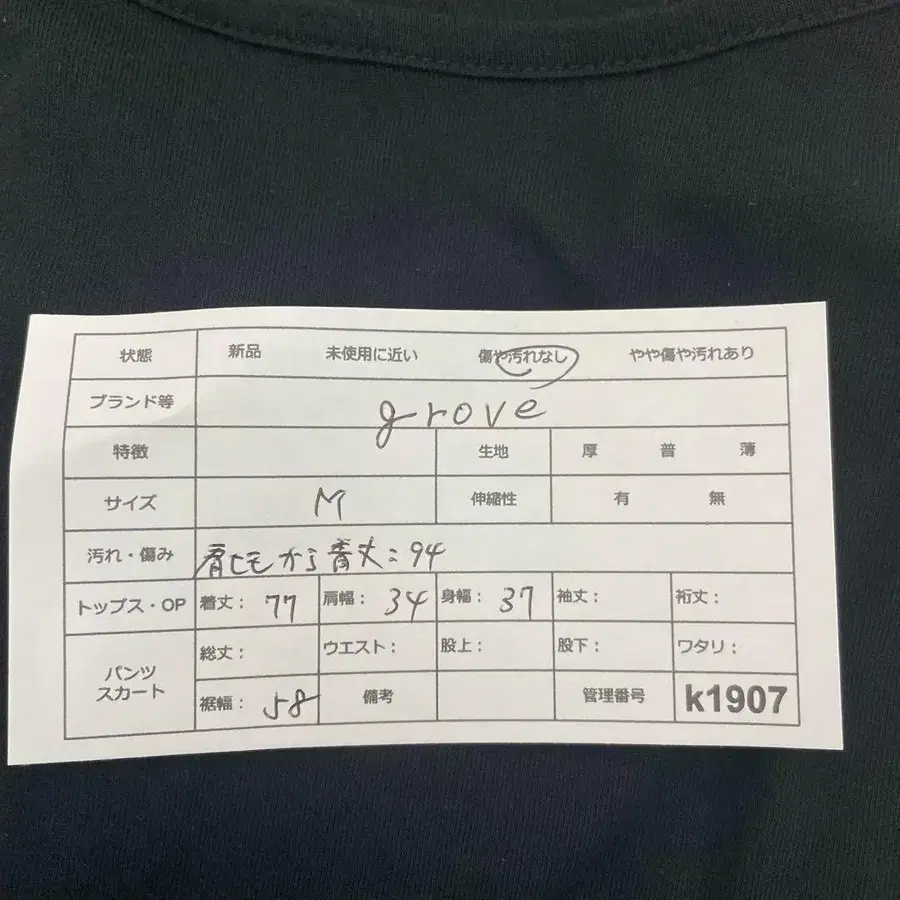 状態 新品 未使用に近い 傷や汚れなし やや傷や汚れあり
ブランド等 grove
特徴 生地 厚 普 薄
サイズ M 伸縮性 有 無
汚れ・傷み 肩ヒモから着丈:94
トップス・OP 着丈: 77 肩幅: 34 身幅: 37 袖丈: 裄丈:
パンツ スカート 総丈: ウエスト: 股上: 股下: ワタリ:
裾幅: 58 備考 管理番号 k1907